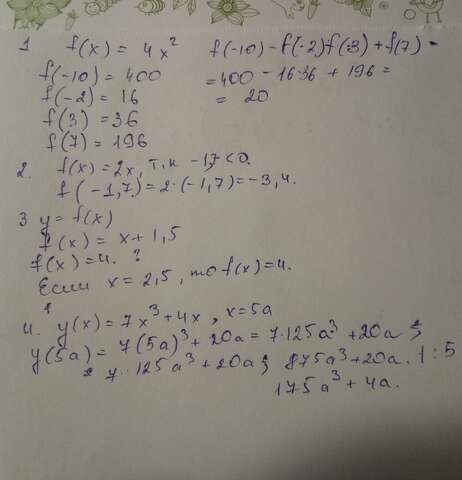 1 f(x) = 4x² f(-10) - f(-2)f(3) + f(7) =
f(-10) = 400 = 400 - 16·36 + 196 =
f(-2) = 16 = 20
f(3) = 36
f(7) = 196
2. f(x) = 2x, т.к -1,7 < 0.
f(-1,7) = 2·(-1,7) = -3,4.
3 y = f(x)
f(x) = x + 1,5
f(x) = 4. ?
Если x = 2,5, то f(x) = 4.
4. y(x) = 7x³ + 4x, x = 5a
y(5a) = 7(5a)³ + 20a = 7·125a³ + 20a =
= 7·125a³ + 20a; 875a³ + 20a. | : 5
175a³ + 4a.